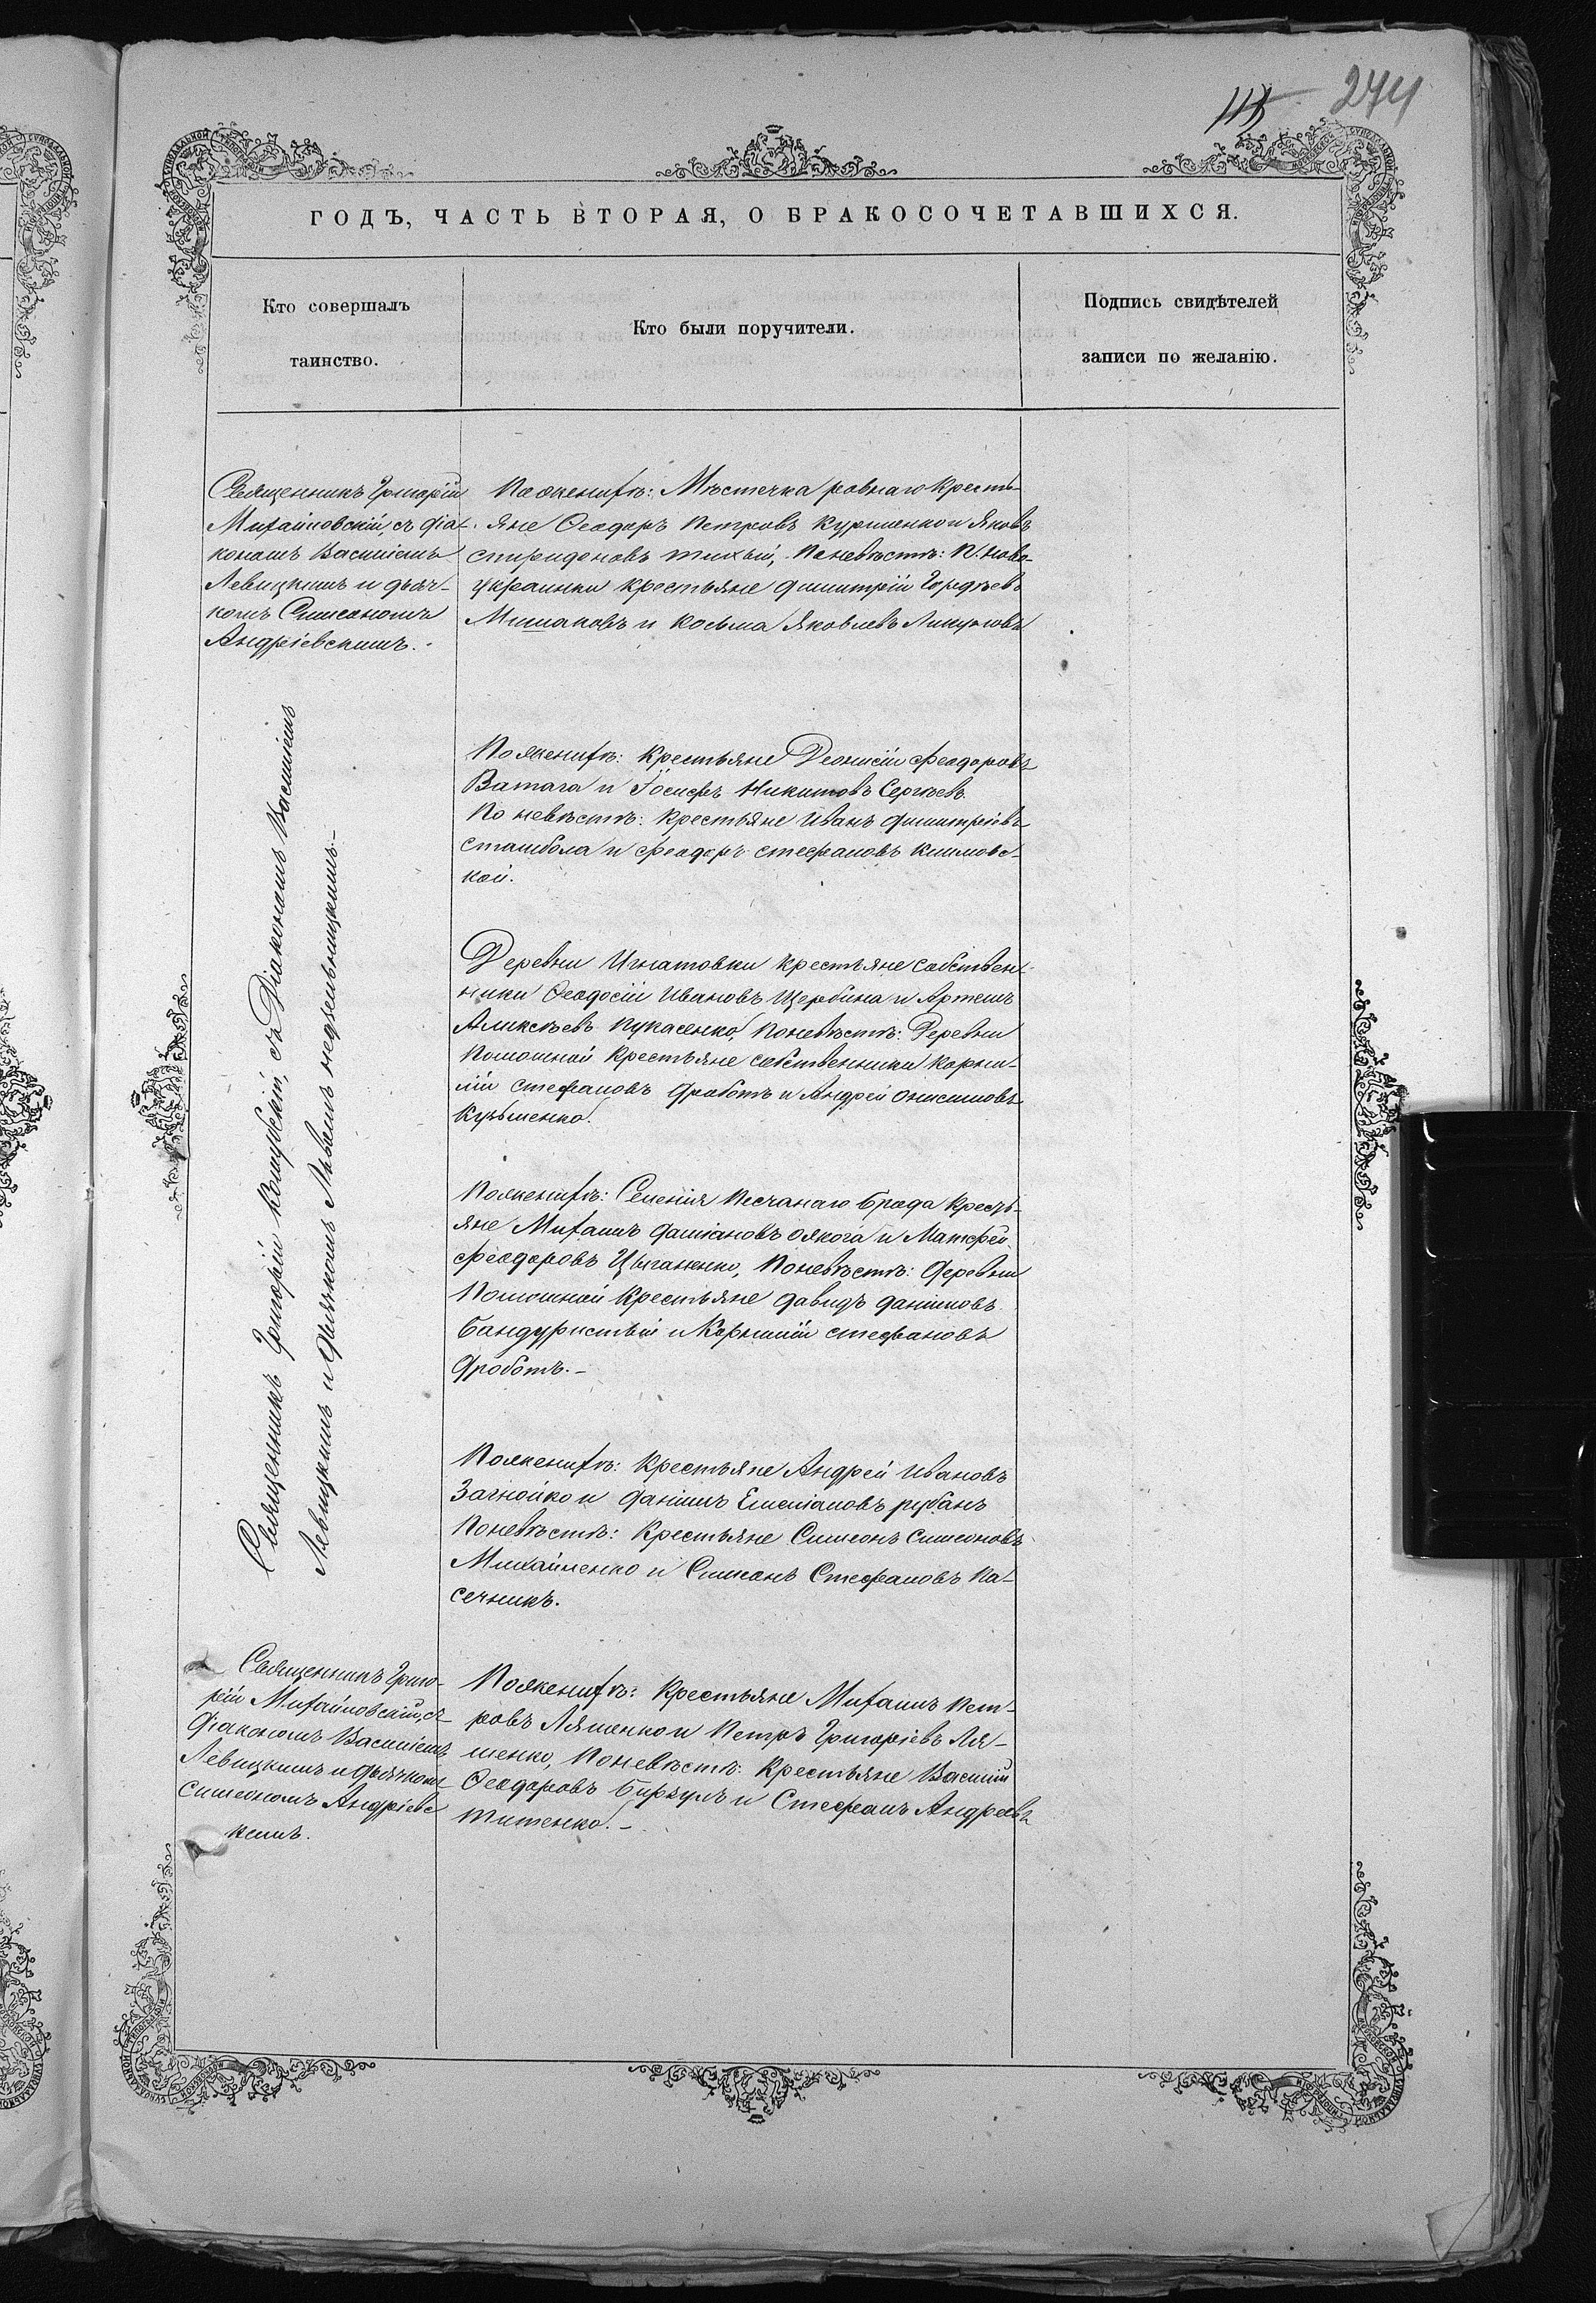 115 274
ГОДЪ, ЧАСТЬ ВТОРАЯ, О БРАКОСОЧЕТАВШИХСЯ.
Кто совершалъ
таинство.
Кто были поручители.
Подпись свидѣтелей
записи по желанію.
Священникъ Григорій
Михайловскій, съ діа-
кономъ Василіемъ
Левицкимъ и дьяч-
комъ Симеономъ
Андріевскимъ.
По женихѣ: Мѣстечка ровнаго Кресть-
яне Ѳеодоръ Петровъ Куриленко и Яковъ
Спиридоновъ тихій, По невѣстѣ: П. Ново-
украинки крестьяне Димитрій Гордѣевъ
Мишаковъ и Косьма Яковлевъ
Священникъ Григорій съ Діакономъ Василіемъ
Левицкимъ и Дьячкомъ Львомъ недзельницкимъ.-
По женихѣ: Крестьяне Деонисій Феодоровъ
Ватага и Іосифъ Никитовъ Сергѣевъ.
По невѣстѣ: Крестьяне Иванъ Димитріевъ
стамбола и Феодоръ Стефановъ Климовс-
кой.
Деревни Игнатовки крестьяне собствен-
ники Ѳеодосій Ивановъ Щербина и Артемъ
Алексѣевъ Лукасенко, По невѣстѣ: Деревни
Помошной Крестьяне собственники Корни-
лій Стефановъ Дроботъ и Андрей Онисимовъ
Кузьменко.
По женихѣ: Селенія Песчанаго Брода Кресть-
яне Михаилъ Даміановъ Ожога и Матфей
Феодоровъ Цыганенко, По невѣстѣ: Деревни
Помошной Крестьяне Давидъ Даниловъ
Бандуристый и Корнилій Стефановъ
Дроботъ.-
По женихѣ: Крестьяне Андрей Ивановъ
Загнойко и Даніилъ Емеліановъ рубанъ
По невѣстѣ: Крестьяне Симеонъ Симеоновъ
Михайленко и Симеонъ Стефановъ Па-
сечникъ.
Священникъ Григо-
рій Михайловскій, съ
Діакономъ Василіемъ
Левицкимъ и Дьячкомъ
Симеономъ Андріевс-
кимъ.
По женихѣ: Крестьяне Михаилъ Пет-
ровъ Ляшенко и Петръ Григоріевъ Ля-
шенко, По невѣстѣ: Крестьяне Василій
Ѳеодоровъ Бирзулъ и Стефанъ Андреевъ
Титенко.-